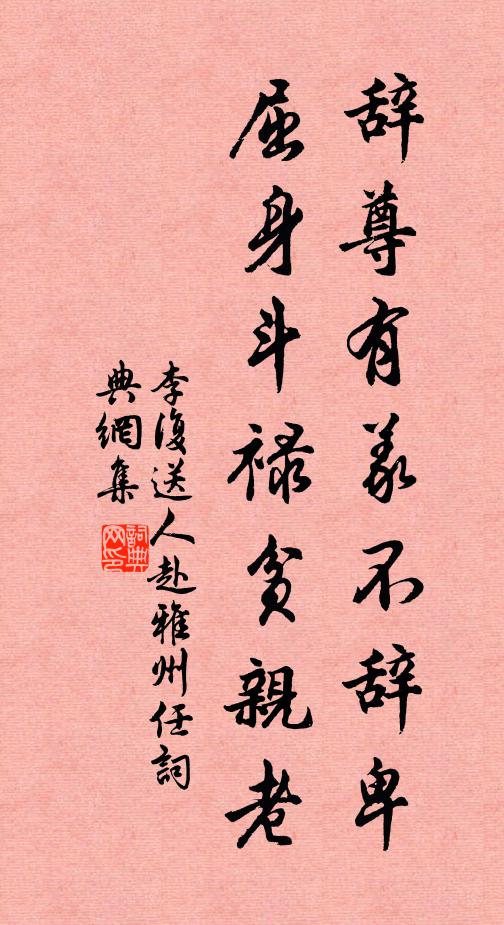 辞尊有義不辞卑
屈身斗祿貧親老
李復送人赴雅州任詞
典網集
詞典网印